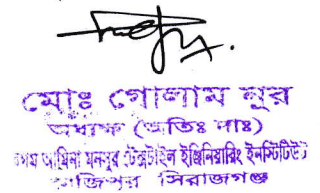 মোঃ গোলাম নুর
অধ্যক্ষ (অতিঃ দাঃ)
বেগম আমিনা মনসুর টেক্সটাইল ইঞ্জিনিয়ারিং ইনস্টিটিউট
কাজিপুর সিরাজগঞ্জ